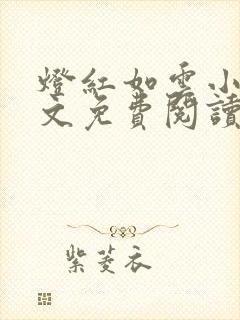 燈紅如雲小
文免費閱讀
紫菱衣